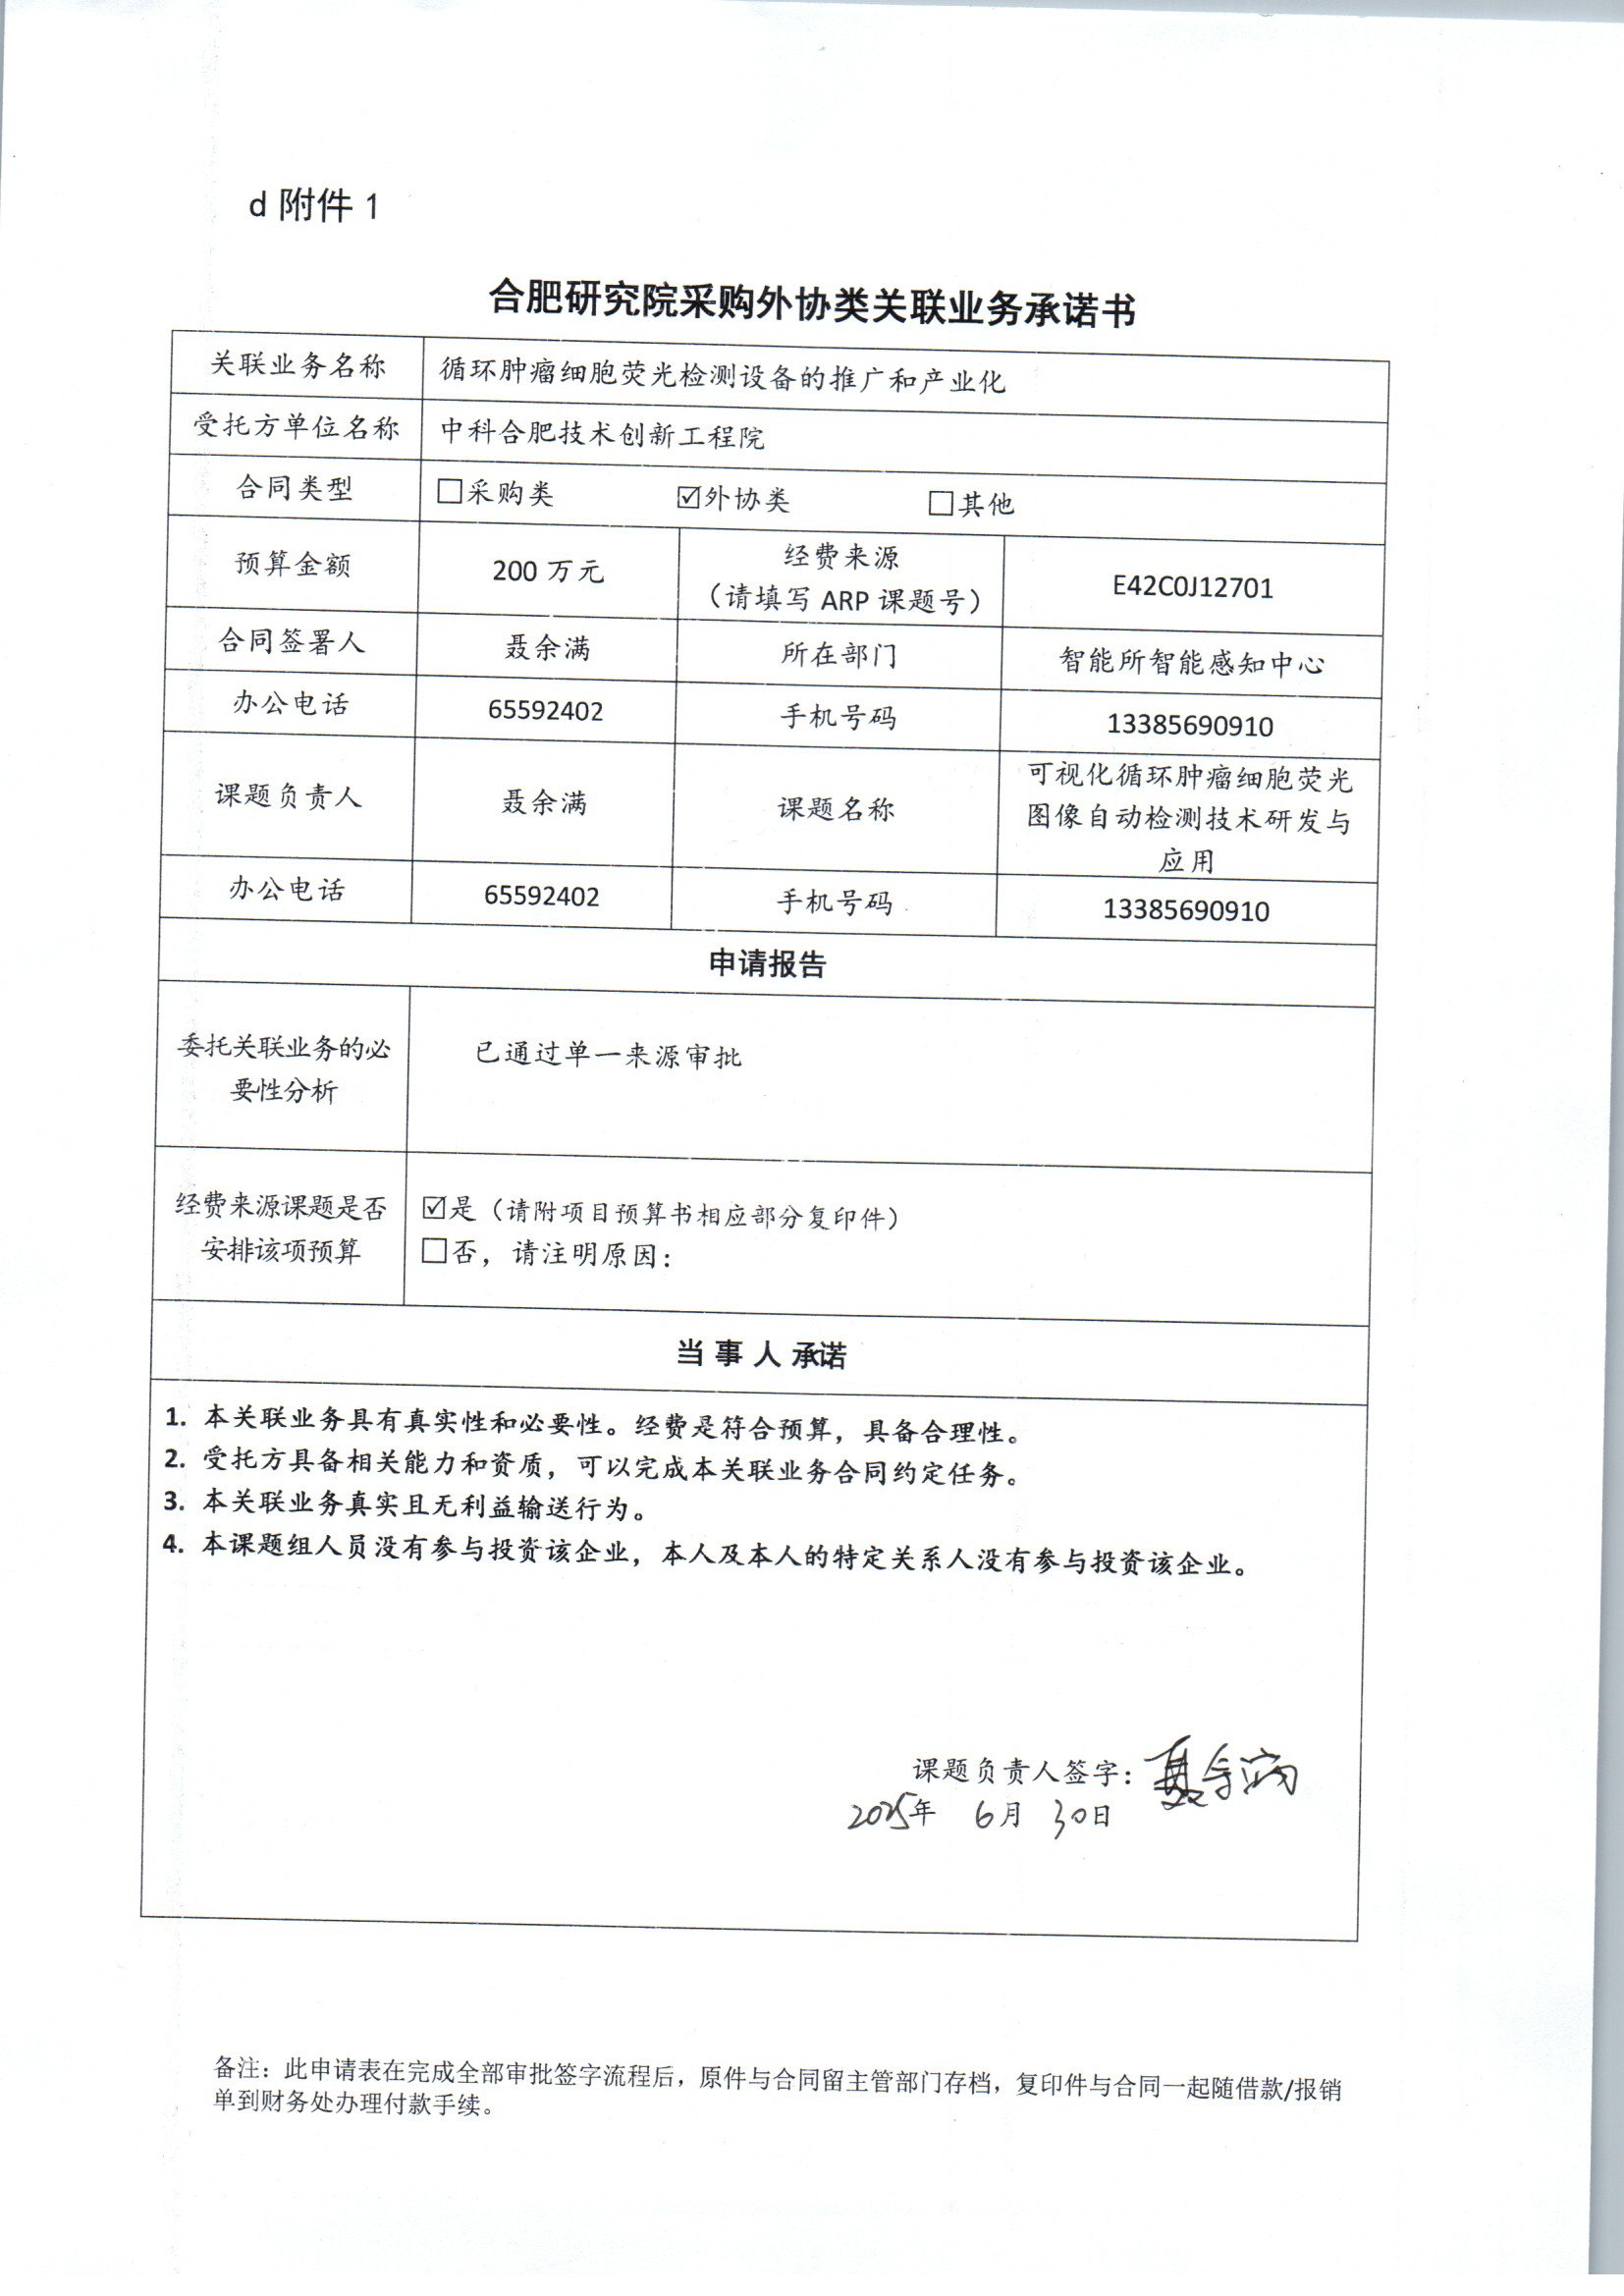 d 附件 1
合肥研究院采购外协类关联业务承诺书
关联业务名称 循环肿瘤细胞荧光检测设备的推广和产业化
受托方单位名称 中科合肥技术创新工程院
合同类型 □采购类 ☑外协类 □其他
预算金额 200 万元 经费来源
（请填写 ARP 课题号） E42C0J12701
合同签署人 聂余满 所在部门 智能所智能感知中心
办公电话 65592402 手机号码 13385690910
课题负责人 聂余满 课题名称 可视化循环肿瘤细胞荧光
图像自动检测技术研发与
应用
办公电话 65592402 手机号码 13385690910
申请报告
委托关联业务的必
要性分析
已通过单一来源审批
经费来源课题是否
安排该项预算
☑是（请附项目预算书相应部分复印件）
□否，请注明原因：
当 事 人 承诺
1. 本关联业务具有真实性和必要性。经费是符合预算，具备合理性。
2. 受托方具备相关能力和资质，可以完成本关联业务合同约定任务。
3. 本关联业务真实且无利益输送行为。
4. 本课题组人员没有参与投资该企业，本人及本人的特定关系人没有参与投资该企业。
课题负责人签字：聂余满
2025年 6月 30日
备注：此申请表在完成全部审批签字流程后，原件与合同留主管部门存档，复印件与合同一起随借款/报销
单到财务处办理付款手续。